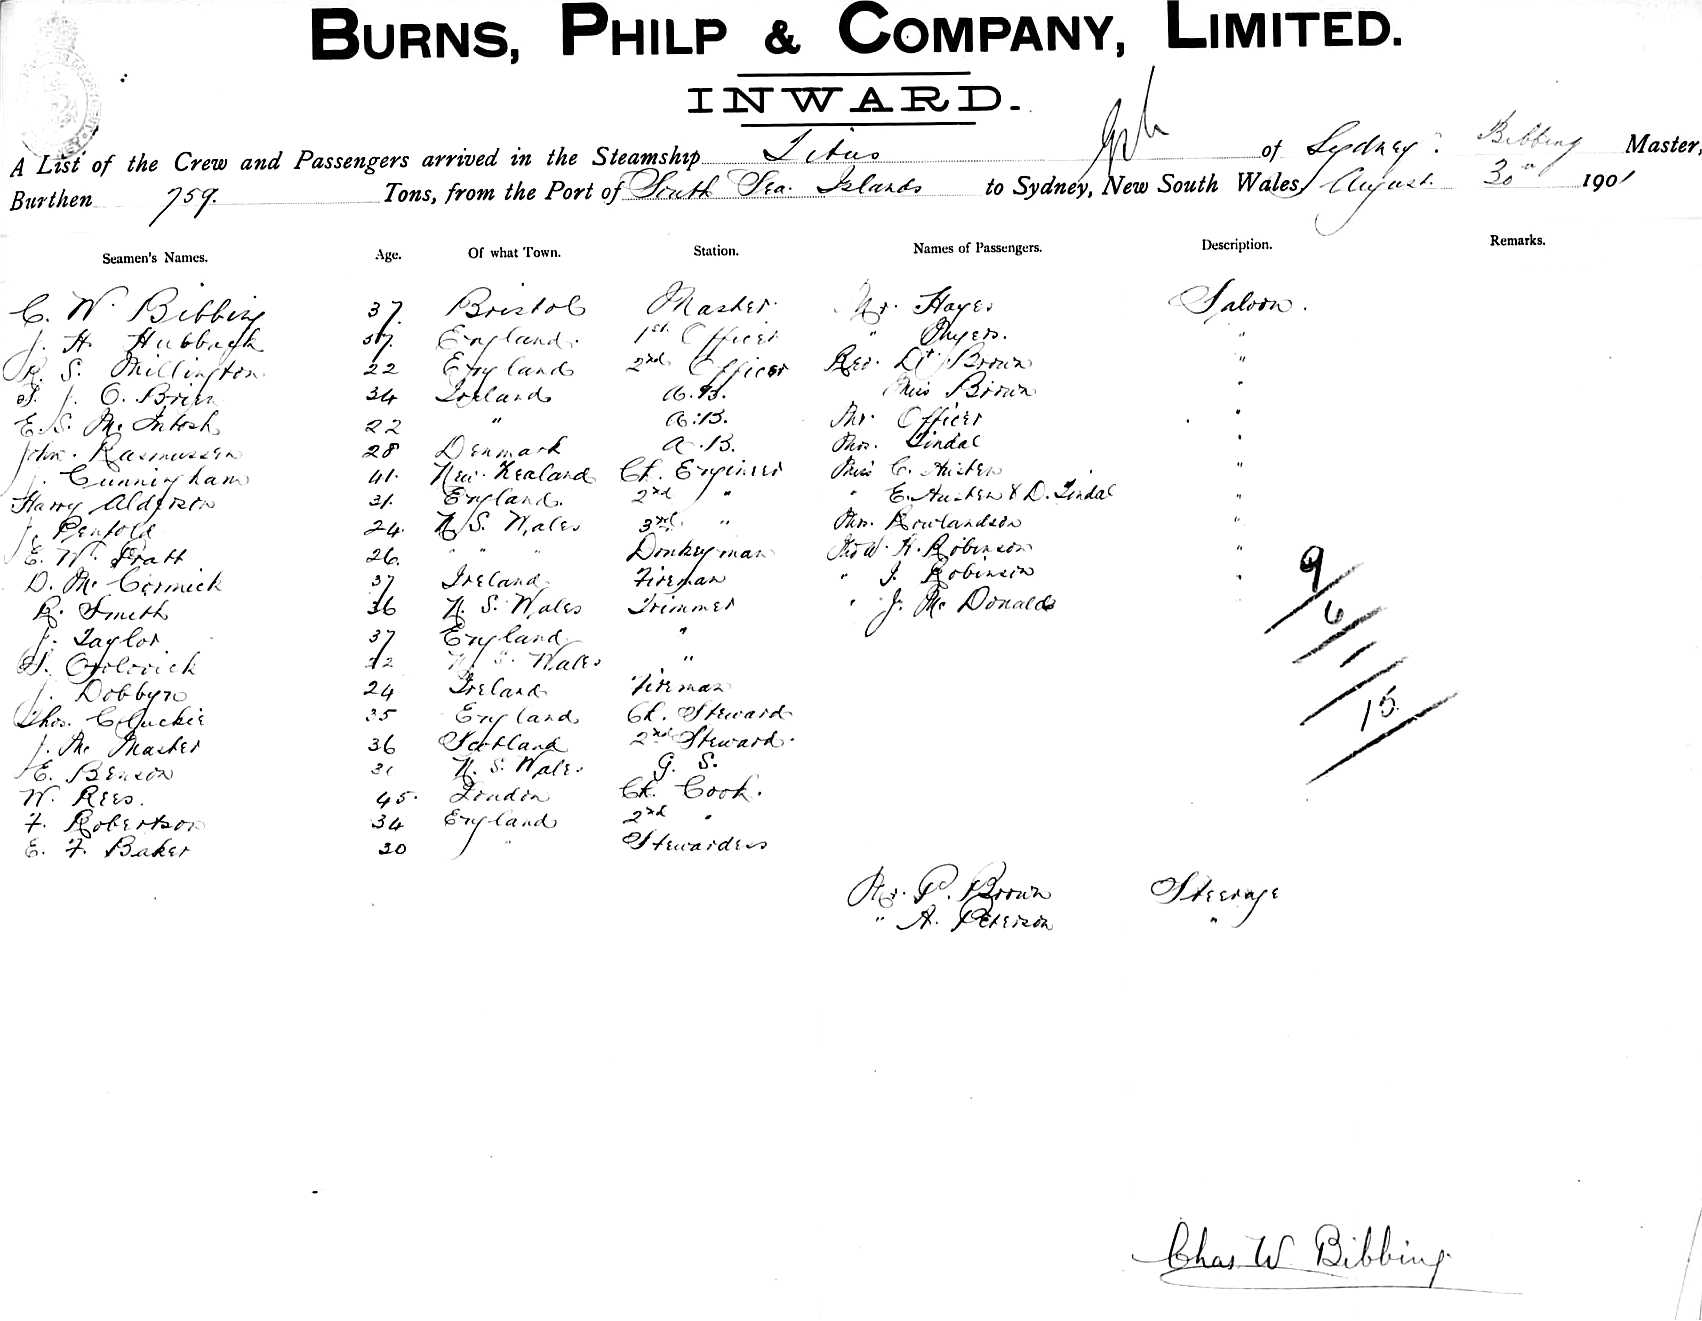 BURNS, PHILP & COMPANY, LIMITED.
INWARD.
A List of the Crew and Passengers arrived in the Steamship Titus of Sydney. Bibbing Master,
Burthen 759. Tons, from the Port of South Sea Islands to Sydney, New South Wales August 30th 1901
Seamen's Names. Age. Of what Town. Station. Names of Passengers. Description. Remarks.
C. W. Bibbing 37. Bristol Master Mr. Hayes Saloon.
J. H. Hubbuck England. 1st Officer "
R. S. Millington 22 England 2nd Officer Rev. Dr. Brown "
J. O. Brien 34 Ireland A.B. Miss Brown "
E. S. Mc Intosh 22 " A.B. Mr. Officer "
John. Rasmussen 28 Denmark A.B. Mrs. Lindal "
J. Cunningham 41. New Zealand Ch. Engineer Miss C. Austen "
Harry Alderson 31. England. 2nd " " E. Austen & D. Lindal "
J. Penfold 24. N. S. Wales 3rd. " Mrs. Rowlandson "
E. W. Pratt 26. " " " Donkeyman W. H. Robinson "
D. Mc Cormick 37 Ireland Fireman " J. Robinson "
R. Smith 36 N. S. Wales Trimmer " J. Mc Donald "
J. Taylor 37 England "
N. S. Wales "
J. Dobbyn 24 Ireland Fireman
Thos. Cluckie 35 England Ch. Steward
J. Mc Master 36 Scotland 2nd Steward.
E. Benson 31 N. S. Wales G. S.
W. Rees. 45. London Ch. Cook.
F. Robertson 34 England 2nd "
E. F. Baker 30 " Stewardess
9/
6/
1/
15
Mr. P. Brown Steerage
" A. Peterson "
Chas W Bibbing.